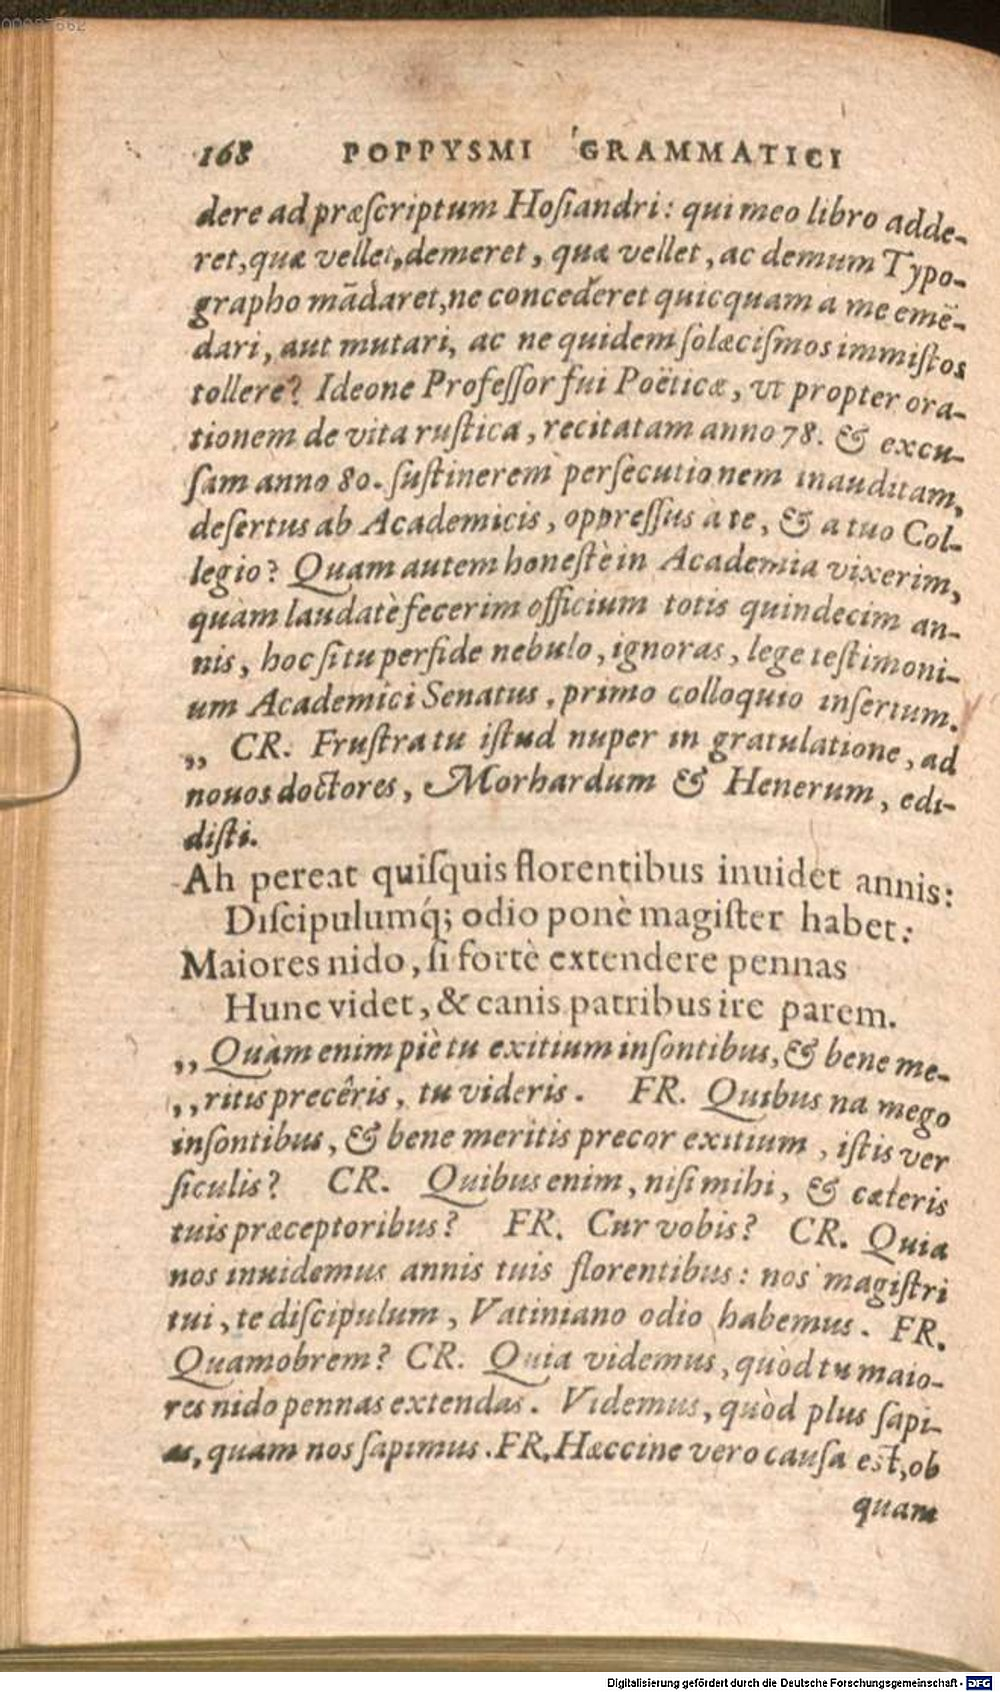 00087662
168 POPPYSMI GRAMMATICI
dere ad præſcriptum Hoſiandri: qui meo libro adde-
ret, quæ vellet, demeret, quæ vellet, ac demum Typo-
grapho mādaret, ne concederet quicquam a me emē-
dari, aut mutari, ac ne quidem ſolœciſmos immiſtos
tollere? Ideone Profeſſor fui Poëticæ, vt propter ora-
tionem de vita ruſtica, recitatam anno 78. & excu-
ſam anno 80. ſuſtinerem perſecutionem inauditam,
deſertus ab Academicis, oppreſſus à te, & a tuo Col-
legio? Quam autem honeſtè in Academia vixerim,
quàm laudatè fecerim officium totis quindecim an-
nis, hoc ſi tu perfide nebulo, ignoras, lege teſtimoni-
um Academici Senatus, primo colloquio inſertum.
„ CR. Fruſtra tu iſtud nuper in gratulatione, ad
nouos doctores, Morhardum & Henerum, edi-
diſti.
Ah pereat quiſquis florentibus inuidet annis:
Diſcipulumq́; odio ponè magiſter habet:
Maiores nido, ſi fortè extendere pennas
Hunc videt, & canis patribus ire parem.
„ Quàm enim piè tu exitium inſontibus, & bene me-
„ ritis precêris, tu videris. FR. Quibus na mego
inſontibus, & bene meritis precor exitium, iſtis ver
ſiculis? CR. Quibus enim, niſi mihi, & cæteris
tuis præceptoribus? FR. Cur vobis? CR. Quia
nos inuidemus annis tuis florentibus: nos magiſtri
tui, te diſcipulum, Vatiniano odio habemus. FR.
Quamobrem? CR. Quia videmus, quòd tu maio-
res nido pennas extendas. Videmus, quòd plus ſapi-
as, quam nos ſapimus. FR. Hæccine vero cauſa est, ob
quam
Digitalisierung gefördert durch die Deutsche Forschungsgemeinschaft - DFG